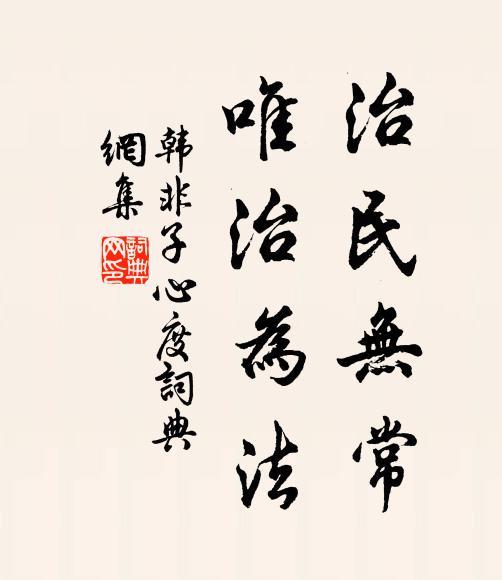 治民無常
唯治為法
韩非子心度詞典
網集
詞典
网印